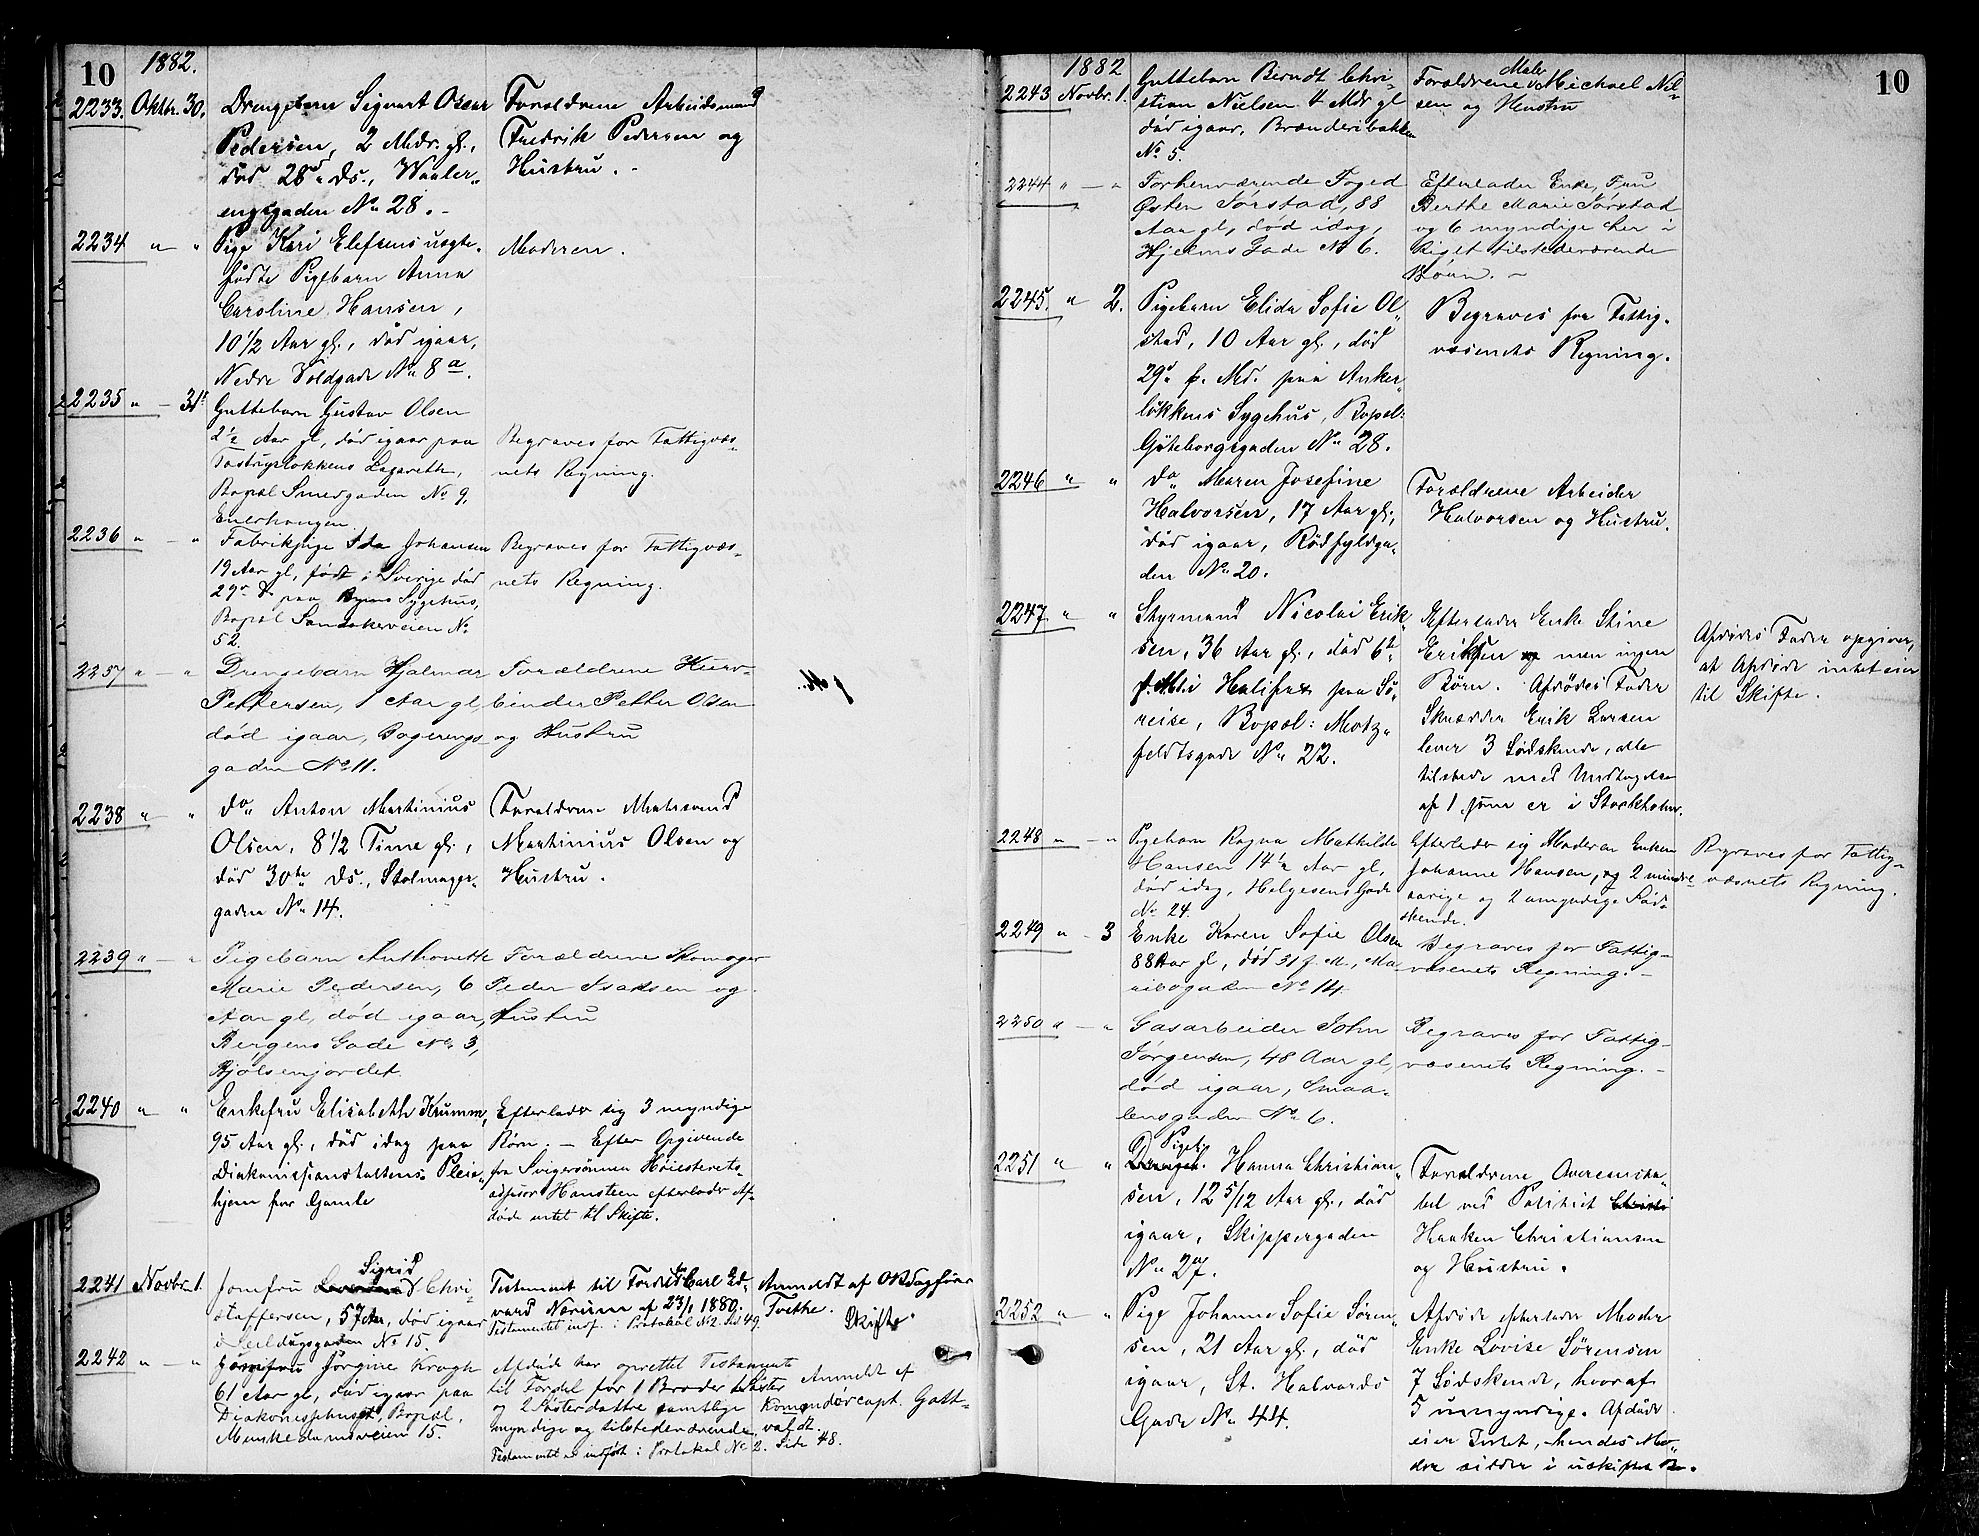 10
1882.
2233. Oktbr. 30. Drengebarn Sigvart Oscar
Pedersen, 2 Mdr. gl.,
død 28d ds., Waaler-
engsgaden No 28. -
Forældrene Arbeidsmand
Fredrik Pedersen og
Hustru. -
2234 " - " Pige Kari Elefsens uægte-
fødte Pigebarn Anna
Caroline Hansen,
10 1/2 Aar gl., død igaar,
Nedre Voldgade No 8 a.
Moderen.
2235 " - 31t Guttebarn Gustav Olsen
2 1/2 Aar gl, død igaar paa
Lazareth,
Bopæl Smedgaden No 9,
Enerhaugen.
Begraves for Fattigvæs-
nets Regning.
2236 " - " Fabrikpige Ida Johansen
19 Aar gl, født i Sverige død
29de ds paa Byens Sygehus,
Bopæl Sandakerveien No
52.
Begraves for Fattigvæs-
nets Regning.
2237 " - " Drengebarn Hjalmar
Pettersen, 1 Aar gl,
død igaar,
gaden No 11.
Forældrene Kurv-
binder Petter Olsen
og Hustru
2238 " - " do Anton Martinius
Olsen, 8 1/2 Time gl.,
død 30te ds., Stolmager-
gaden No 14.
Forældrene
Martinius Olsen og
Hustru.
2239 " - " Pigebarn Anthonette
Marie Pedersen, 6
Aar gl, død igaar,
Bergens Gade No 3,
Bjølsenjordet.
Forældrene Skomager
Peder Isaksen og
Hustru
2240 " - " Enkefru Elisabeth Krumm,
95 Aar gl., død idag paa
Diakonisseanstaltens Pleie-
hjem for Gamle
Efterlader sig 3 myndige
Børn. - Efter Opgivende
fra Svigersønnen Høiesterets-
adsessor Hansteen efterlader Af-
døde intet til Skifte.
2241 Novbr. 1 Jomfru Sigrid Chri-
stoffersen, 57 Aar, død igaar
i Seildugsgaden No 15.
Testament til Fordel for Carl Ed-
vard Norum af 23/1 1880.
Testamentet indf. i Protokol No 2. Side 49.
Anmeldt af ORSagfører
Tvethe.
Skifte
2242 " - " Jomfru Jørgine Krogh
61 Aar gl, død igaar paa
Diakonissehuset, Bopæl,
Munkedamsveien 15.
Afdøde har oprettet Testamente
til Fordel for 1 Broder 1 Søster
og 2 Søsterdøttre samtlige
myndige og tilstedeværende,
Testamentet er indført i Protokol No 2. Side 48.
Anmeldt af
Komandørcapt. Gott-
waldt.
10
1882
2243 Novbr. 1. Guttebarn Berndt Chri-
stian Nielsen 4 Mdr gl
død igaar, Brænderibakken
No 5.
Maler
Forældrene Michael Nil-
sen og Hustru
2244 " - " Forhenværende Foged
Østen Sørstad, 88
Aar gl, død idag,
Hjelms Gade No 6.
Efterlader Enke, Fru
Berthe Marie Sørstad
og 6 myndige her i
Riget tilstedeværende
Børn. -
2245. " 2. Pigebarn Elida Sofie Ol-
stad, 10 Aar gl., død
29d f. Md. paa Anker-
løkkens Sygehus, Bopæl:
Gøteborggaden No 28.
Begraves for Fattig-
væsenets Regning.
2246 " " do Maren Josefine
Halvorsen, 17 Aar gl.,
død igaar, Rødfyldga-
den No 20.
Forældrene Arbeider
Halvorsen og Hustru.
2247 " " Styrmand Nicolai Erik-
sen, 36 Aar gl., død 6te
f. Md i Halifax paa Sø-
reise, Bopæl: Motz-
feldtsgade No 22.
Efterlader Enke Stine
Eriksen men ingen
Børn. Afdødes Fader
Skrædder Erik Larsen
lever 3 Sødskende, alle
tilstede med Undtagelse
af 1 som er i Stockholm.
Afdødes Fader opgiver,
at Afdøde intet eier
til Skifte.
2248 " - " Pigebarn Ragna Mathilde
Hansen 14 1/2 Aar gl,
død idag, Helgesens Gade
No 24.
Efterlader sig Moderen Enken
Johanne Hansen, og 2 mindre-
aarige og 2 umyndige Sød-
skende.
Begraves for Fattig-
væsnets Regning.
2249 " - 3 Enke Karen Sofie Olsen
88 Aar gl, død 31 f. M., Ma-
ribogaden No 14
Begraves for Fattig-
væsenets Regning. -
2250 " - " Gasarbeider John
Jørgensen, 48 Aar gl,
død igaar, Smaa-
lensgaden No 6.
Begraves for Fattig-
væsenets Regning. -
Pigeb.
2251 " " Drengeb. Hanna Christian-
sen, 12 5/12 Aar gl., død
igaar, Skippergaden
No 27.
Forældrene Overconsta-
bel ved Politiet Christi
Haaken Christiansen
og Hustru.
2252 " " Pige Johanne Sofie Søren-
sen, 21 Aar gl., død
igaar, St. Halvards
Gade No 44.
Afdøde efterlader Moder
Enke Lovise Sørensen
7 Sødskende, hvoraf
5 umyndige. Afdøde
eier Intet, hendes Mo-
der sidder i uskiftet Bo.